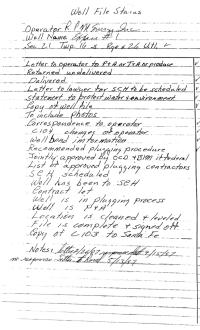 Well File Status
Operator
Well Name # 1
Sec 21 Twp 16 S Rge 26
Letter to operator to P+A or TxA or produce
Returned undelivered
Delivered
Letter to lawyer for SCH to be scheduled
statement to protect water + environment
Copy of well file
To include photos
Correspondence to operator
C104 change of operator
Well bond information
Recommended plugging procedure
Jointly approved by OCD + BLM if federal
List of approved plugging contractors
SCH scheduled
Well has been to SCH
Contract let
Well is in plugging process
Well is P+A
Location is cleaned + leveled
File is complete + signed off
Copy of C103 to Santa Fe
Notes:
no response